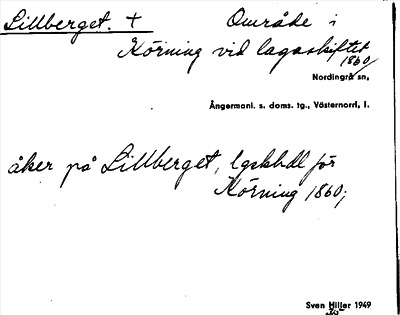 Lillberget. + Område i
Körning vid lagaskiftet
1860
Nordingrå sn,
Ångermanl. s. doms. tg., Västernorrl, l.
åker på Lillberget, lgskhdl för
Körning 1860;
Sven Hiller 1949